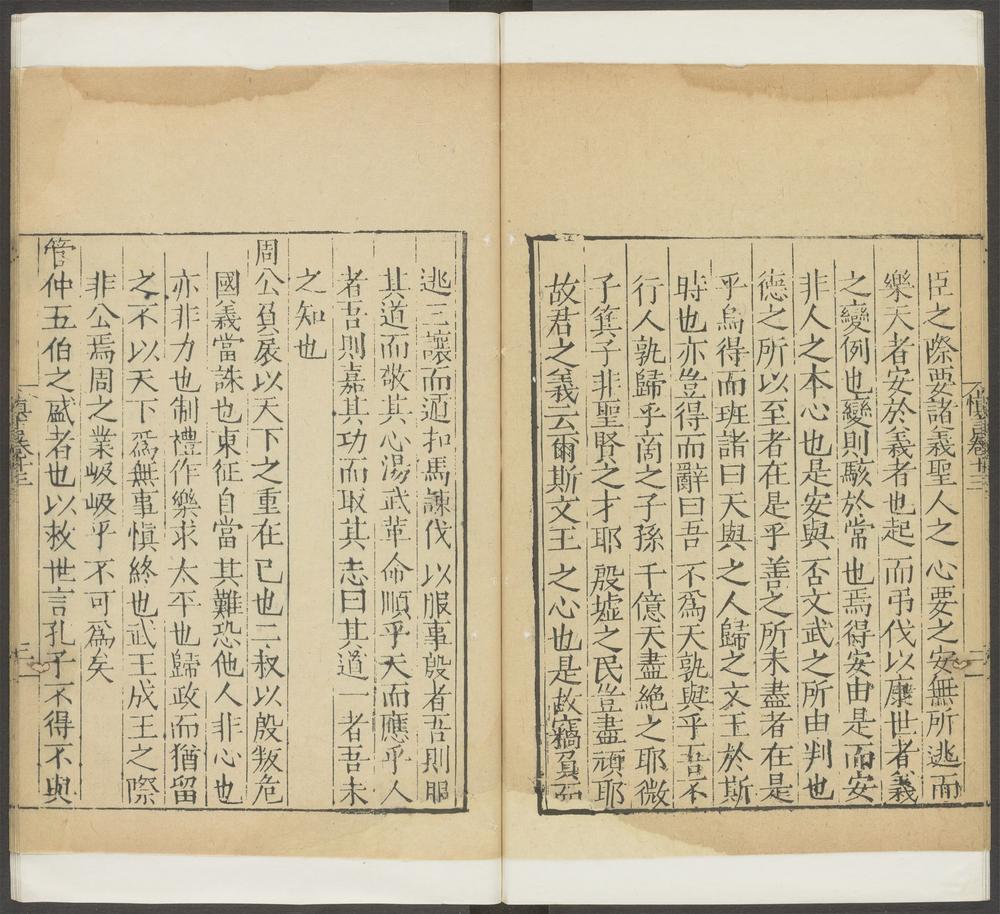 臣之際要諸義聖人之心要之安無所逃而
樂天者安於義者也起而弔伐以康世者義
之變例也變則駭於常也焉得安由是而安
非人之本心也是安與否文武之所由判也
德之所以至者在是乎善之所未盡者在是
乎烏得而班諸曰天與之人歸之文王於斯
時也亦豈得而辭曰吾不爲天孰與乎吾不
行人孰歸乎啇之子孫千億天盡絶之耶微
子箕子非聖賢之才耶殷墟之民豈盡頑耶
故君之義云爾斯文王之心也是故竊負而
逃三讓而逅扣馬諫伐以服事殷者吾則服
其道而敬其心湯武革命順乎天而應乎人
者吾則嘉其功而取其志曰其道一者吾未
之知也
周公負扆以天下之重在已也二叔以殷叛危
國義當誅也東征自當其難恐他人非心也
亦非力也制禮作樂求太平也歸政而猶留
之不以天下爲無事愼終也武王成王之際
非公焉周之業岌岌乎不可爲矣
管仲五伯之盛者也以救世言孔子不得不與
卷十三
二
三